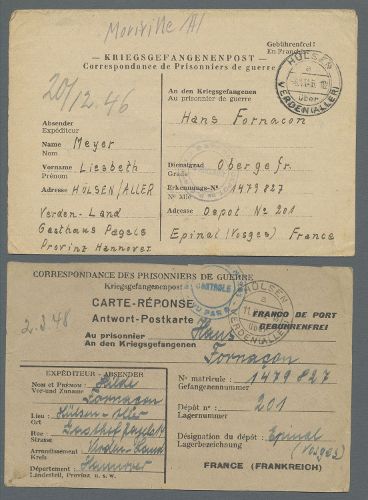 Moriville
Gebührenfrei!
En Franchise
— KRIEGSGEFANGENENPOST —
Correspondance de Prisonniers de guerre
HÜLSEN
a
über
VERDEN (ALLER)
20/12. 46
An den Kriegsgefangenen
Au prisonnier de guerre
Absender
Expéditeur
Hans Fornacon
Name Meyer
Nom
Dienstgrad Obergefr.
Grade
Vorname Liesbeth
Prénom
Erkennungs-Nº 1479827
Nº Mle
Adresse HÜLSEN/ALLER
Adresse Depot No 201
Verden-Land
Gasthaus Pagels
Epinal (Vosges) France
Provinz Hannover
CORRESPONDANCE DES PRISONNIERS DE GUERRE
Kriegsgefangenenpost
CONTROLE
HÜLSEN
a
über
VERDEN (ALLER)
CARTE-RÉPONSE
FRANCO DE PORT
Antwort-Postkarte
GEBÜHRENFREI
2.3.48
Au prisonnier
An den Kriegsgefangenen
Hans
Fornaçon
EXPÉDITEUR - ABSENDER
Nom et Prénom: Hilde
Vor-und Zuname
Fornacon
Nº matricule: 1479827
Gefangenennummer
Lieu: Hülsen-Aller
Ort
Dépôt nº 201
Lagernummer
Rue:
Strasse
Arrondissement Verden-Land
Kreis
Désignation du dépôt: Epinal
Lagerbezeichnung
(Vosges)
Département: Hannover
Ländesteil, Provinz u. s. w.
FRANCE (FRANKREICH)